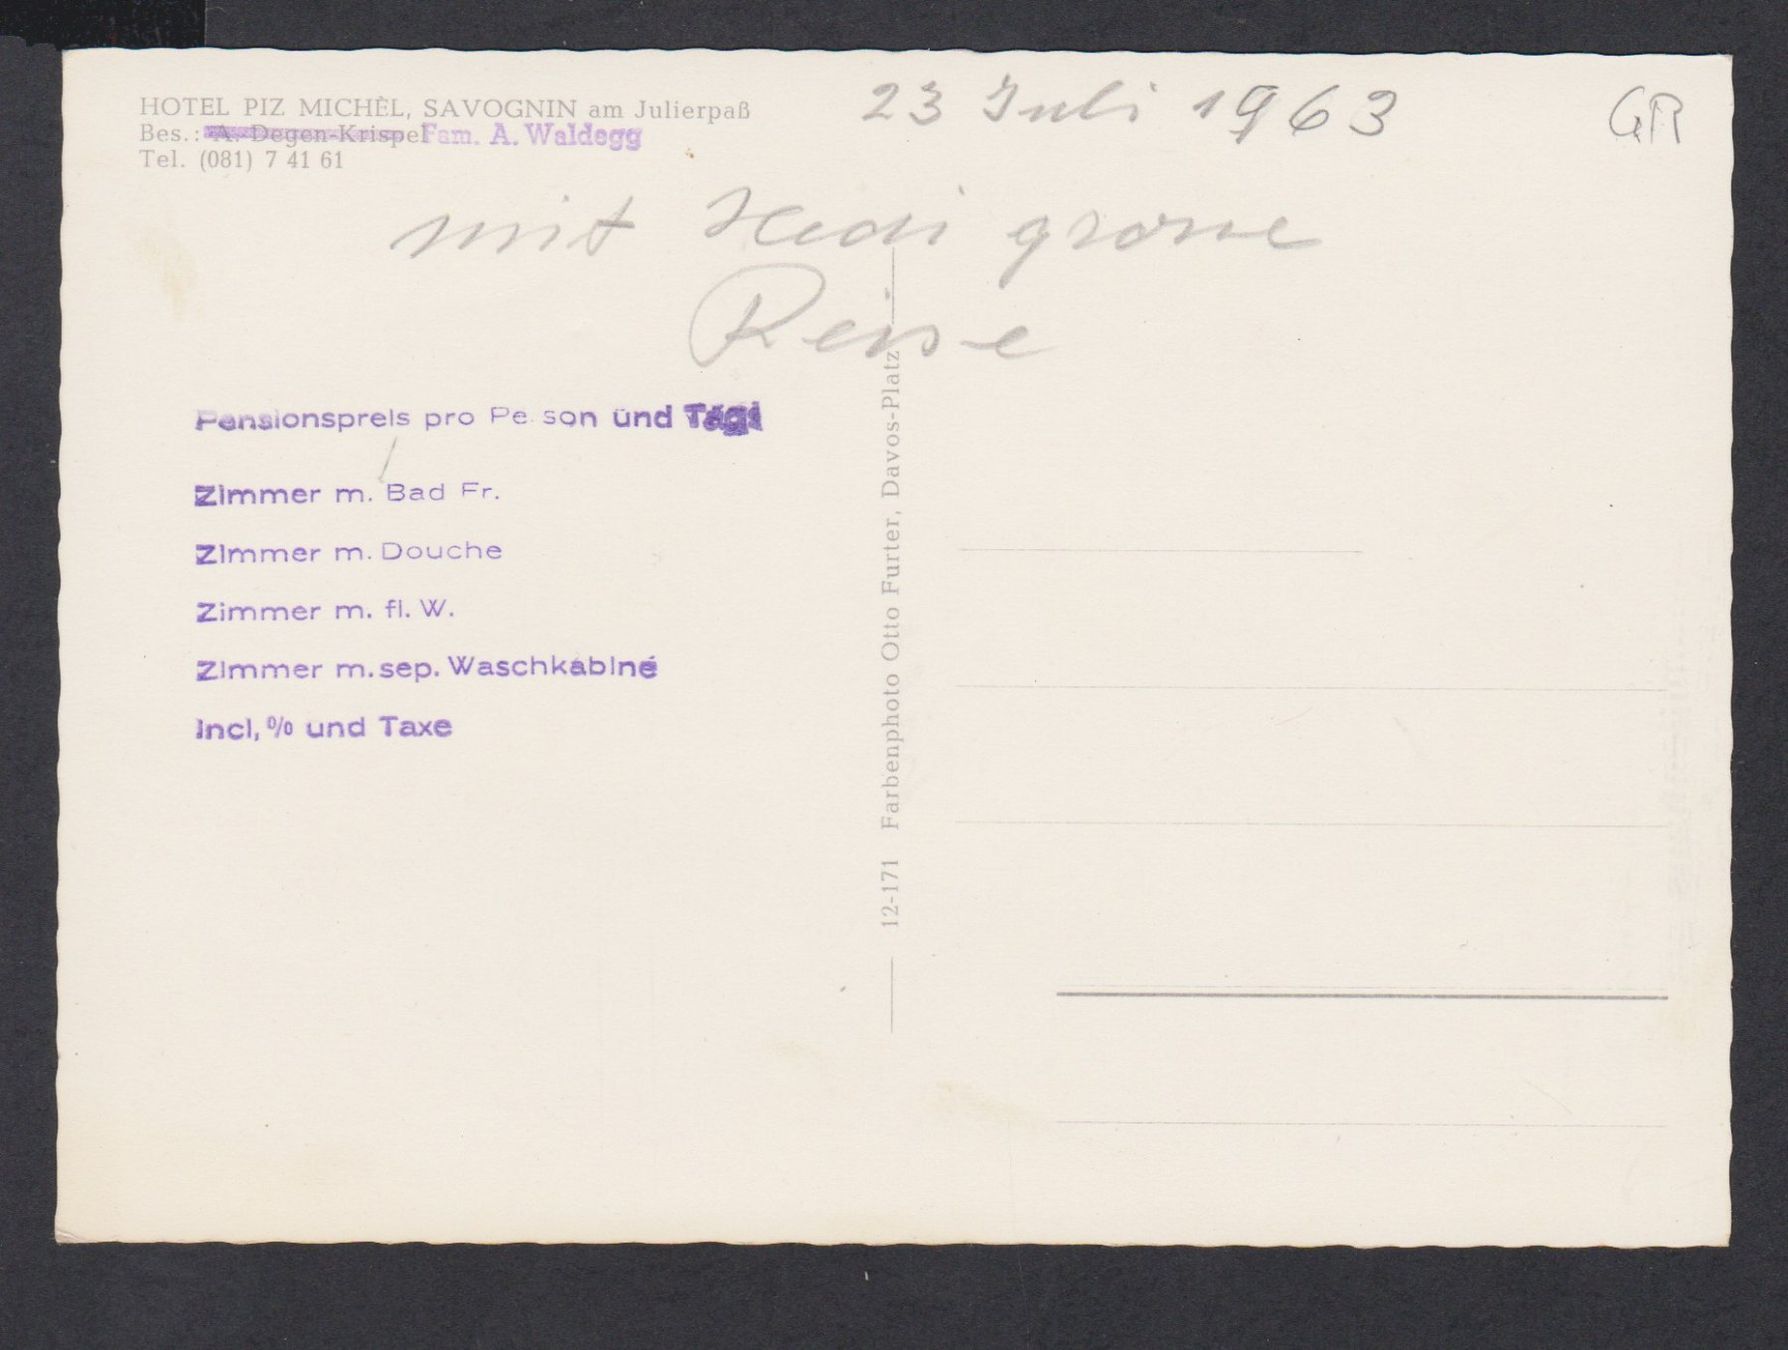 HOTEL PIZ MICHÈL, SAVOGNIN am Julierpaß
Bes.: A. Degen-Krispel Fam. A. Waldegg
Tel. (081) 7 41 61
23 Juli 1963
GR
mit Hedi grosse
Reise
Pensionspreis pro Person und Tag
Zimmer m. Bad Fr.
Zimmer m. Douche
Zimmer m. fl. W.
Zimmer m. sep. Waschkabine
Incl, % und Taxe
12-171 Farbenphoto Otto Furter, Davos-Platz